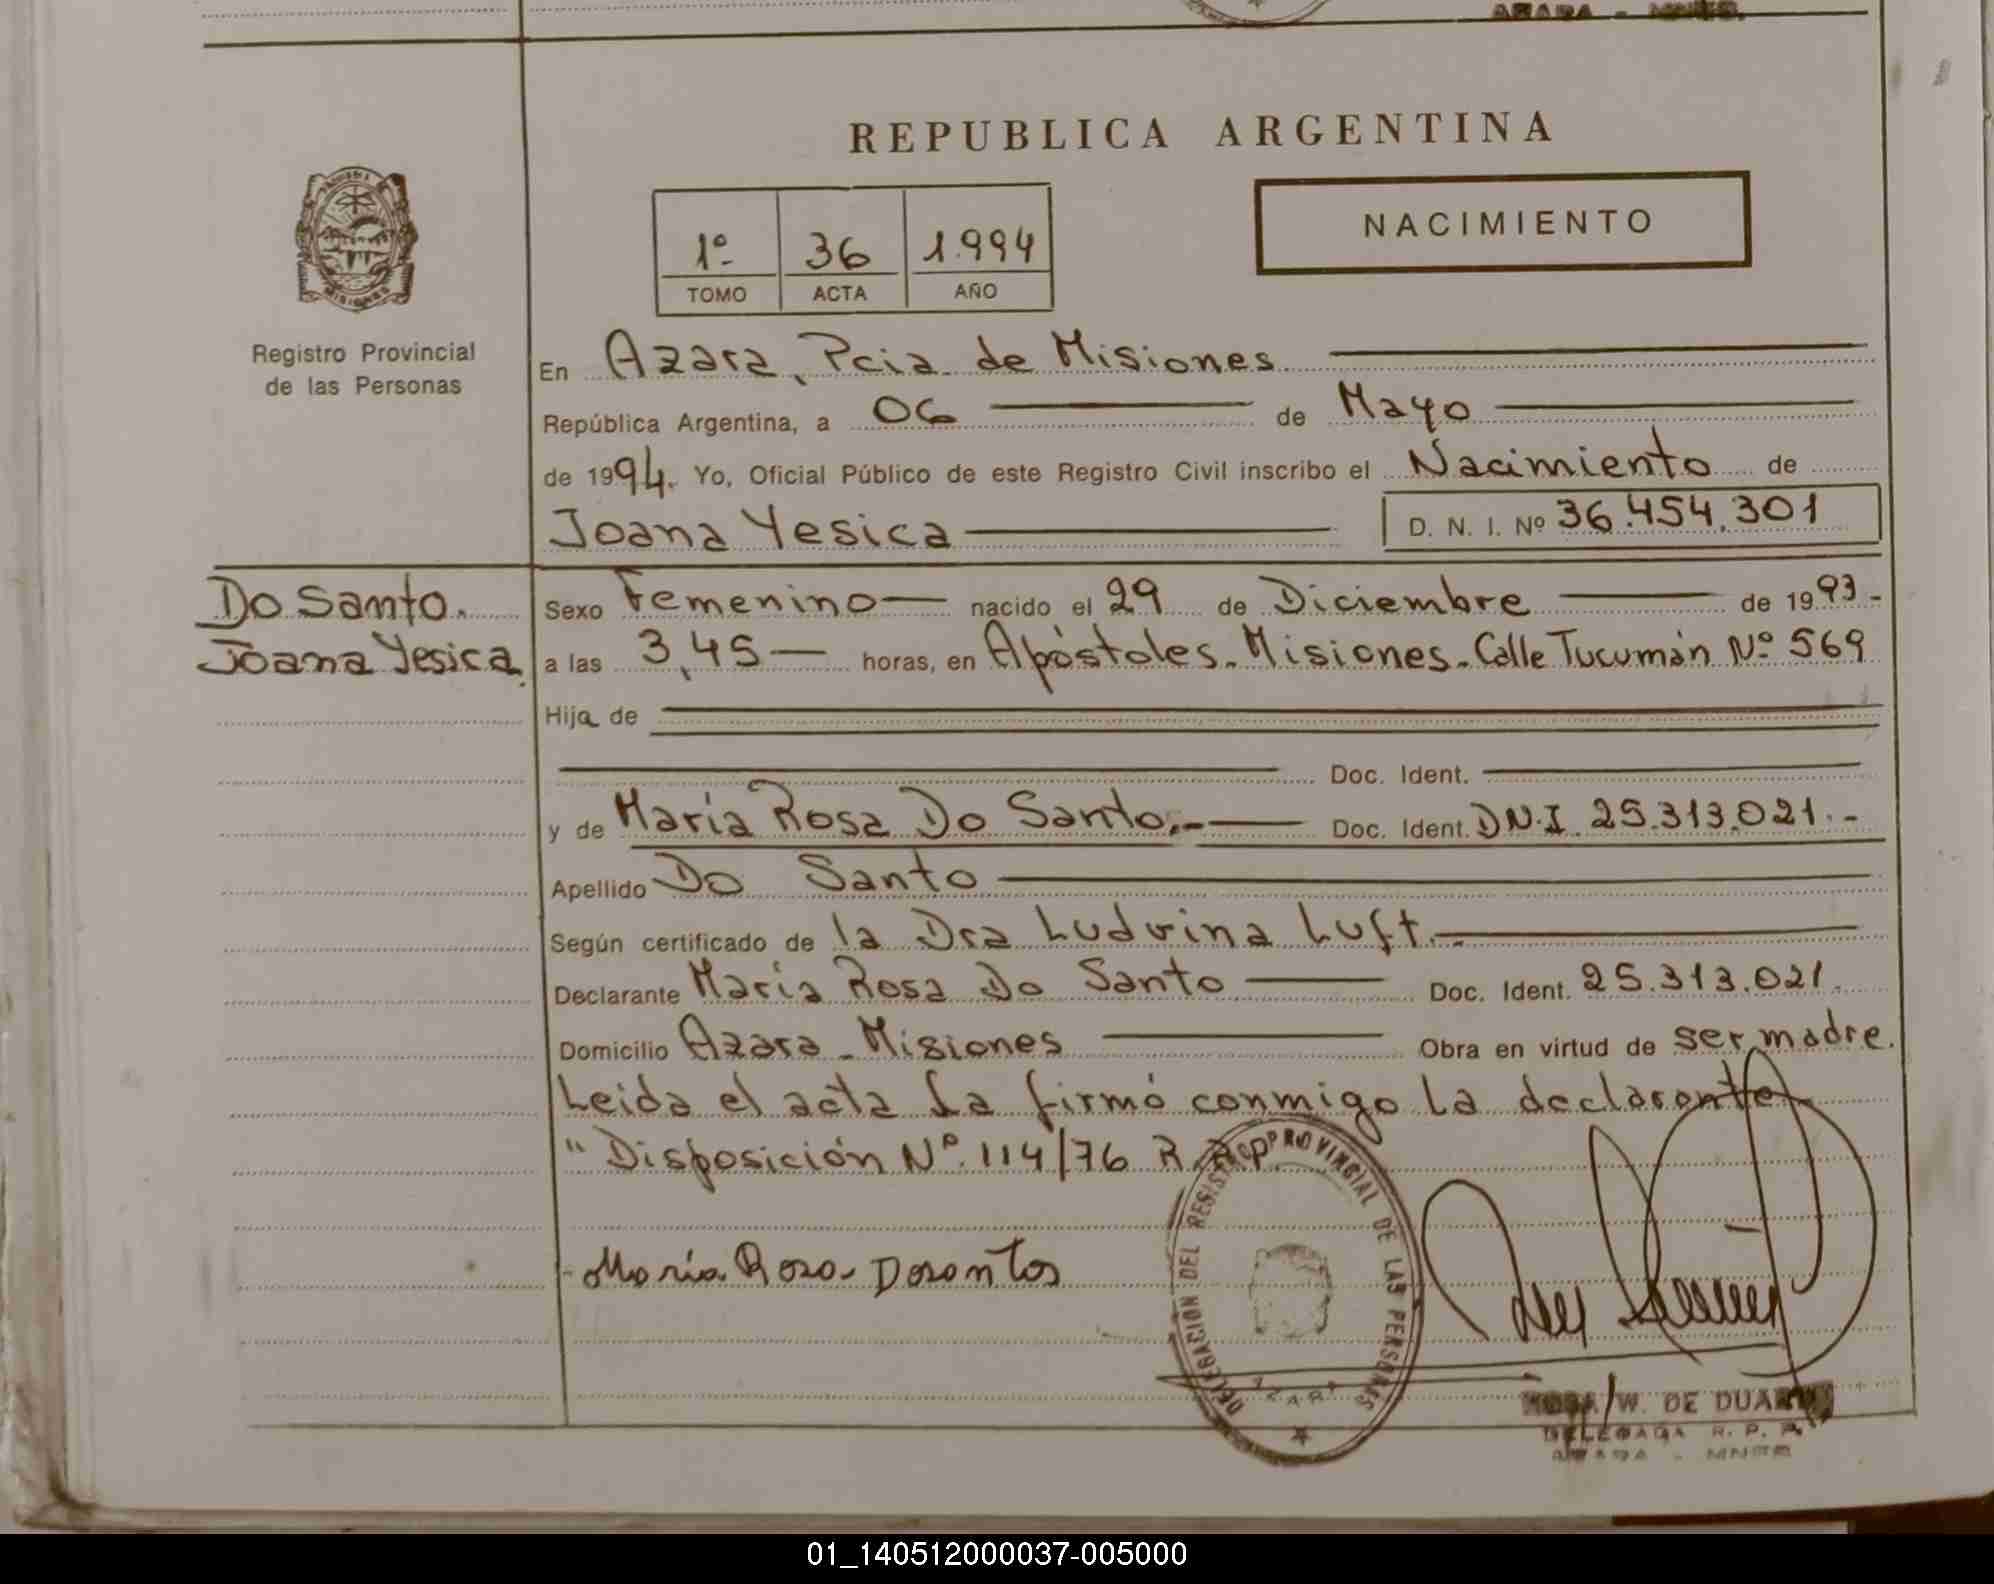 AZARA - MNES.
REPUBLICA ARGENTINA
NACIMIENTO
1º 36 1.994
TOMO ACTA AÑO
Registro Provincial
de las Personas
En Azara, Pcia de Misiones
República Argentina, a 06 de Mayo
de 1994. Yo, Oficial Público de este Registro Civil inscribo el Nacimiento de
Joana Yesica D. N. I. Nº 36.454.301
Do Santo.
Joana Yesica
Sexo Femenino nacido el 29 de Diciembre de 1993-
a las 3,45 horas, en Apóstoles. Misiones. Calle Tucumán Nº 569
Hija de
Doc. Ident.
y de María Rosa Do Santo.- Doc. Ident. DN.I. 25.313.021.-
Apellido Do Santo
Según certificado de la Dra Ludvina Luft.-
Declarante María Rosa Do Santo Doc. Ident. 25.313.021.
Domicilio Azara - Misiones Obra en virtud de ser madre.
Leida el acta la firmó conmigo la declarante.
"Disposición Nº 114/76 R.P.P
María Rosa Dosantos
DELEGACION DEL REGISTRO PROVINCIAL DE LAS PERSONAS
AZARA
W. DE DUARTE
DELEGADA R. P. P.
AZARA - MNES
01_140512000037-005000